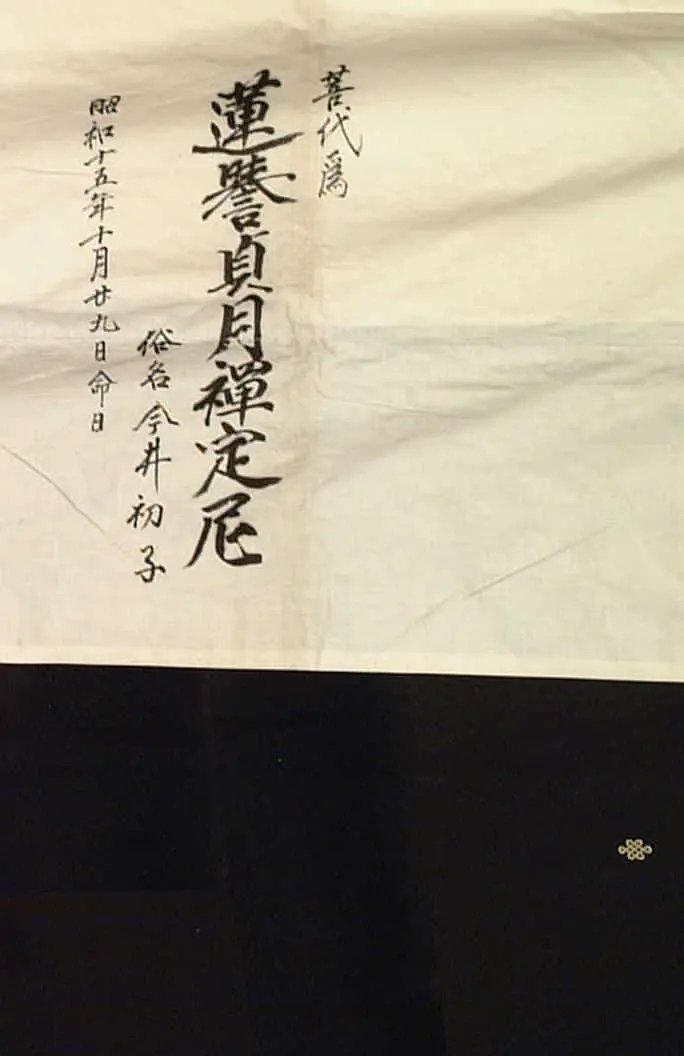 菩代爲
蓮譽貞月禪定尼
俗名今井初子
昭和十五年十月廿九日命日